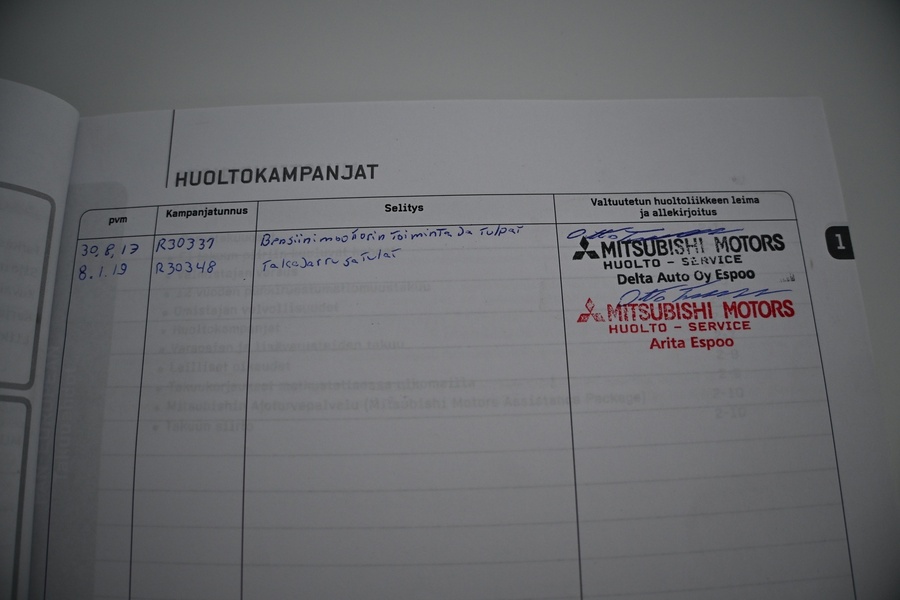 HUOLTOKAMPANJAT
pvm Kampanjatunnus Selitys Valtuutetun huoltoliikkeen leima ja allekirjoitus
30.8.17 R30337 Bensiinimoottorin toiminta ja tulpat
8.1.19 R30348 Takajarrusatulat
MITSUBISHI MOTORS
HUOLTO - SERVICE
Delta Auto Oy Espoo
MITSUBISHI MOTORS
HUOLTO - SERVICE
Arita Espoo
1